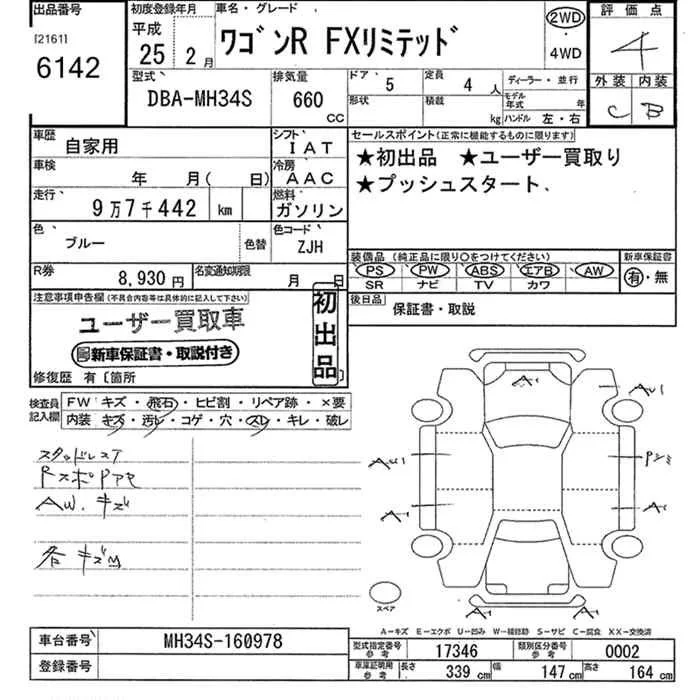 出品番号
[2161]
6142
初度登録年月
平成
25 2 月
車名・グレード
ワゴンR FXリミテッド
2WD
・
4WD
評価点
4
外装 内装
C B
型式
DBA-MH34S
排気量
660
CC
ドア 5
形状
定員 4 人
積載 kg
ディーラー・並行
モデル年式 年
ハンドル 左・右
車歴 自家用
シフト IAT
車検 年 月( 日)
冷房 AAC
走行 9万7千442 km
燃料 ガソリン
色 ブルー
色替
色コード ZJH
R券 8,930 円
名変通知期限 月 日
セールスポイント(正常に機能するものに限ります)
★初出品 ★ユーザー買取り
★プッシュスタート.
装備品 (純正品に限り○をつけてください)
PS PW ABS エアB AW
SR ナビ TV カワ
新車保証書
有・無
後日品 保証書・取説
注意事項申告欄(不具合内容等は具体的に記入して下さい)
ユーザー買取車
新車保証書・取説付き
初出品
修復歴 有〔箇所 〕
検査員記入欄
FW キズ・飛石・ヒビ割・リペア跡・×要
内装 キズ・汚レ・コゲ・穴・スレ・キレ・破レ
スタッドレスT
RスポPアセ
AW.キズ
各キズM
A1
AU1
AU1
A1
A1
A1
A1
スペア
A-キズ E-エクボ U-凹み W-補修跡 S-サビ C-腐食 XX-交換済
車台番号 MH34S-160978
登録番号
型式指定番号 参考 17346
類別区分番号 参考 0002
車庫証明用 参考 長さ 339 cm 幅 147 cm 高さ 164 cm